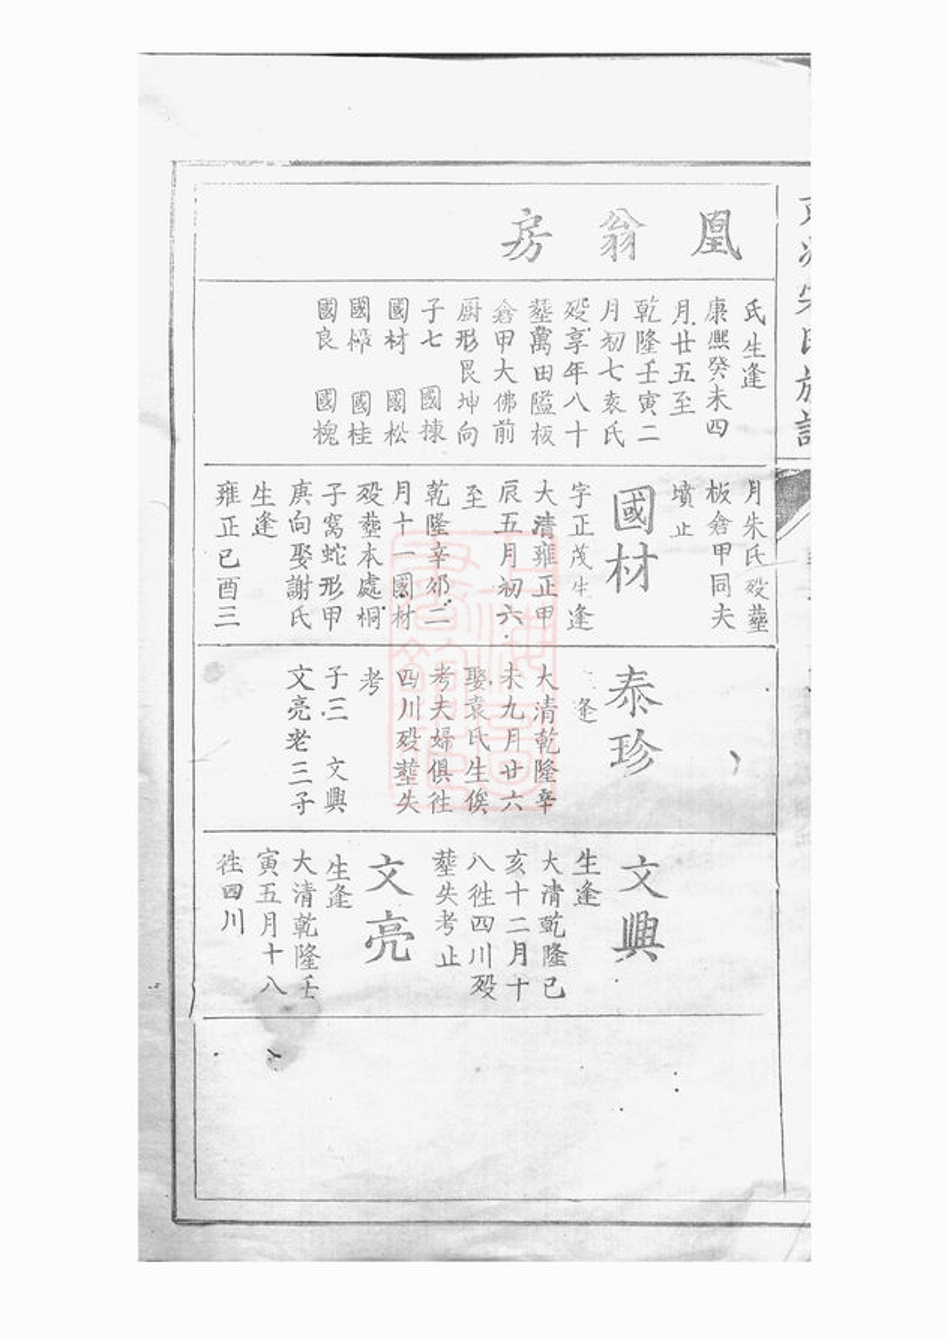 凰翁房
氏生逢
康熙癸未四
月廿五至
乾隆壬寅二
月初七袁氏
殁享年八十
塟萬田隘板
倉甲大佛前
厨形艮坤向
子七 國棟
國材 國松
國桂
國良 國槐
月朱氏殁塟
板倉甲同夫
墳止
國材
字正茂生逢
大清雍正甲
辰五月初六
至
乾隆辛卯二
月十一國材
殁塟本處桐
子窩蛇形甲
庚向娶謝氏
生逢
雍正已酉三
泰珍
逢
大清乾隆辛
未九月廿六
娶袁氏生俟
考夫婦俱徃
四川殁塟失
考
子三 文興
文亮老三子
文興
生逢
大清乾隆已
亥十二月十
八徃四川殁
塟失考止
文亮
生逢
大清乾隆壬
寅五月十八
徃四川